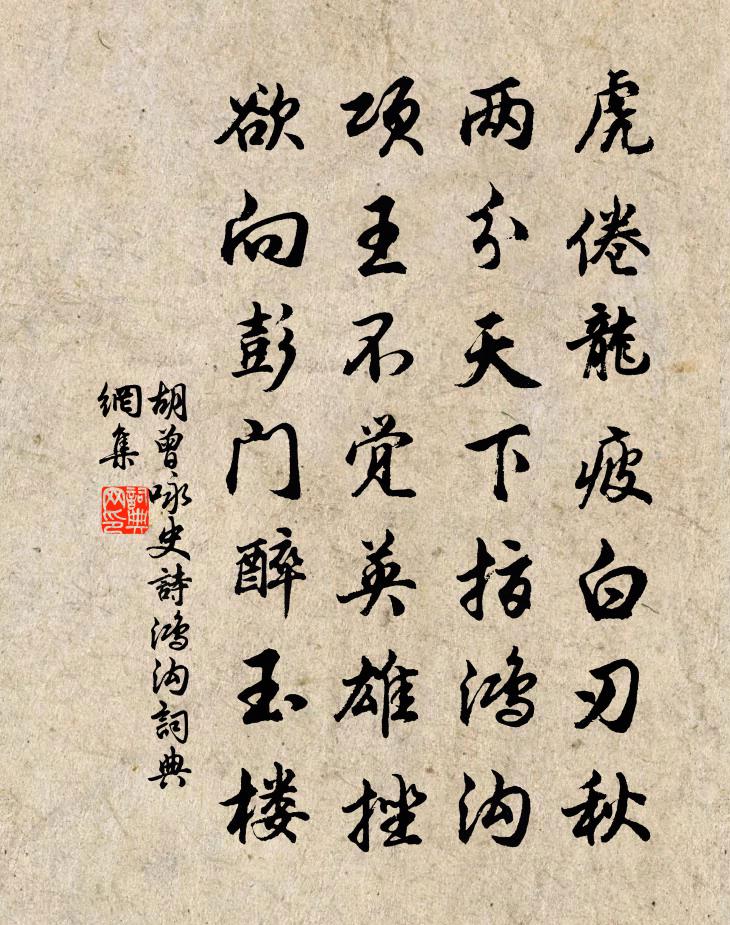 虎倦龍疲白刃秋
两分天下指鴻沟
项王不觉英雄挫
欲向彭门醉玉楼
胡曾咏史詩鴻沟詞典
網集
詞典网印